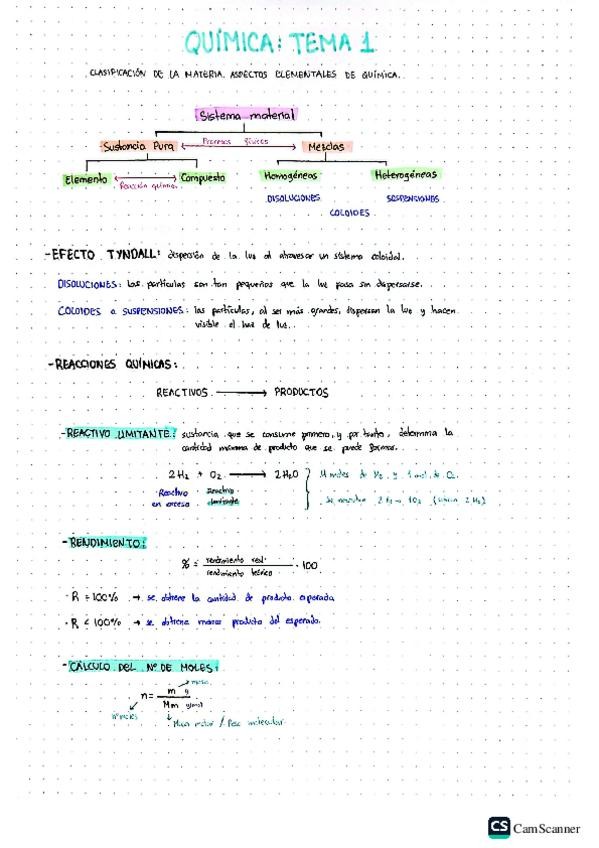 QUÍMICA: TEMA 1
CLASIFICACIÓN DE LA MATERIA. ASPECTOS ELEMENTALES DE QUÍMICA.
Sistema material
Sustancia Pura Procesos físicos Mezclas
Elemento Reacción química Compuesto Homogéneas Heterogéneas
DISOLUCIONES SUSPENSIONES
COLOIDES
-EFECTO TYNDALL: dispersión de la luz al atravesar un sistema coloidal.
DISOLUCIONES: Las partículas son tan pequeñas que la luz pasa sin dispersarse.
COLOIDES o SUSPENSIONES: las partículas, al ser más grandes, dispersan la luz y hacen
visible el haz de luz.
-REACCIONES QUÍMICAS:
REACTIVOS → PRODUCTOS
-REACTIVO LIMITANTE: sustancia que se consume primero, y por tanto, determina la
cantidad máxima de producto que se puede formar.
2H₂ + O₂ → 2H₂O } 4 moles de H₂ y 1 mol de O₂
Reactivo Reactivo
en exceso limitante
-RENDIMIENTO:
% = rendimiento real / rendimiento teórico · 100
· R = 100% → se obtiene la cantidad de producto esperada
· R < 100% → se obtiene menor producto del esperado.
-CÁLCULO DEL Nº DE MOLES:
masa
n = m g / Mm g/mol
nº moles
Masa molar / Peso molecular
CS CamScanner